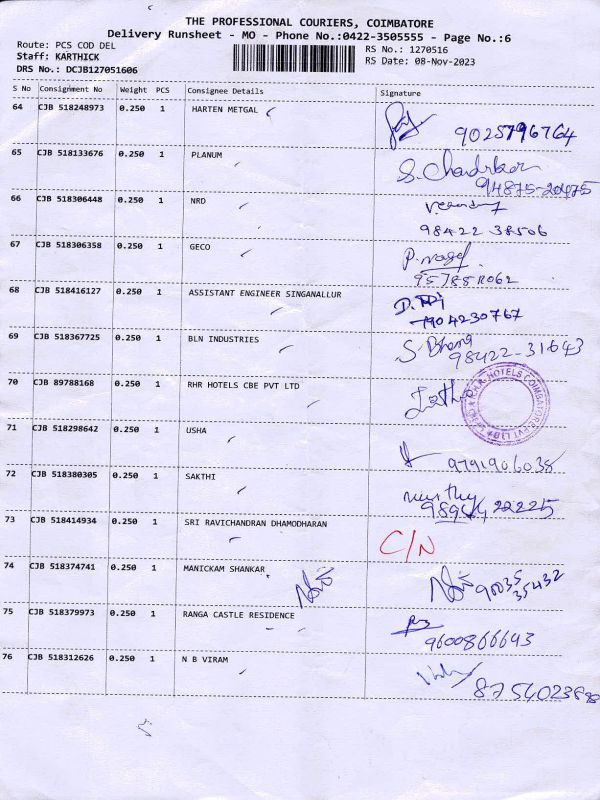 THE PROFESSIONAL COURIERS, COIMBATORE
Delivery Runsheet - MO - Phone No.:0422-3505555 - Page No.:6
Route: PCS COD DEL
RS No.: 1270516
Staff: KARTHICK
RS Date: 08-Nov-2023
DRS No.: DCJB127051606
S No Consignment No Weight PCS Consignee Details Signature
64 CJB 518248973 0.250 1 HARTEN METGAL 9025796764
65 CJB 518133676 0.250 1 PLANUM 94875-20475
66 CJB 518306448 0.250 1 NRD 98422 38506
67 CJB 518306358 0.250 1 GECO
68 CJB 518416127 0.250 1 ASSISTANT ENGINEER SINGANALLUR 7904230767
69 CJB 518367725 0.250 1 BLN INDUSTRIES 98422-31643
70 CJB 89788168 0.250 1 RHR HOTELS CBE PVT LTD
71 CJB 518298642 0.250 1 USHA 9791906038
72 CJB 518380305 0.250 1 SAKTHI
73 CJB 518414934 0.250 1 SRI RAVICHANDRAN DHAMODHARAN C/N
74 CJB 518374741 0.250 1 MANICKAM SHANKAR 90035 35432
75 CJB 518379973 0.250 1 RANGA CASTLE RESIDENCE 9600866643
76 CJB 518312626 0.250 1 N B VIRAM